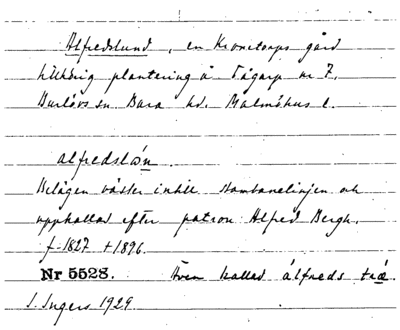 Alfredslund, en Kronetorps gård
tillhörig plantering å Tågarp nr 7,
Burlövs sn Bara hd. Malmöhus l.
alfredslöṉ.
Belägen väster intill stambanelinjen och
uppkallad efter patron Alfred Bergh.
f. 1827 † 1896.
Nr 5528. Även kallad álfreds træ
I. Ingers 1929